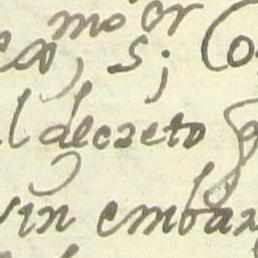 mo or
s; Co
l decreto
sin embar